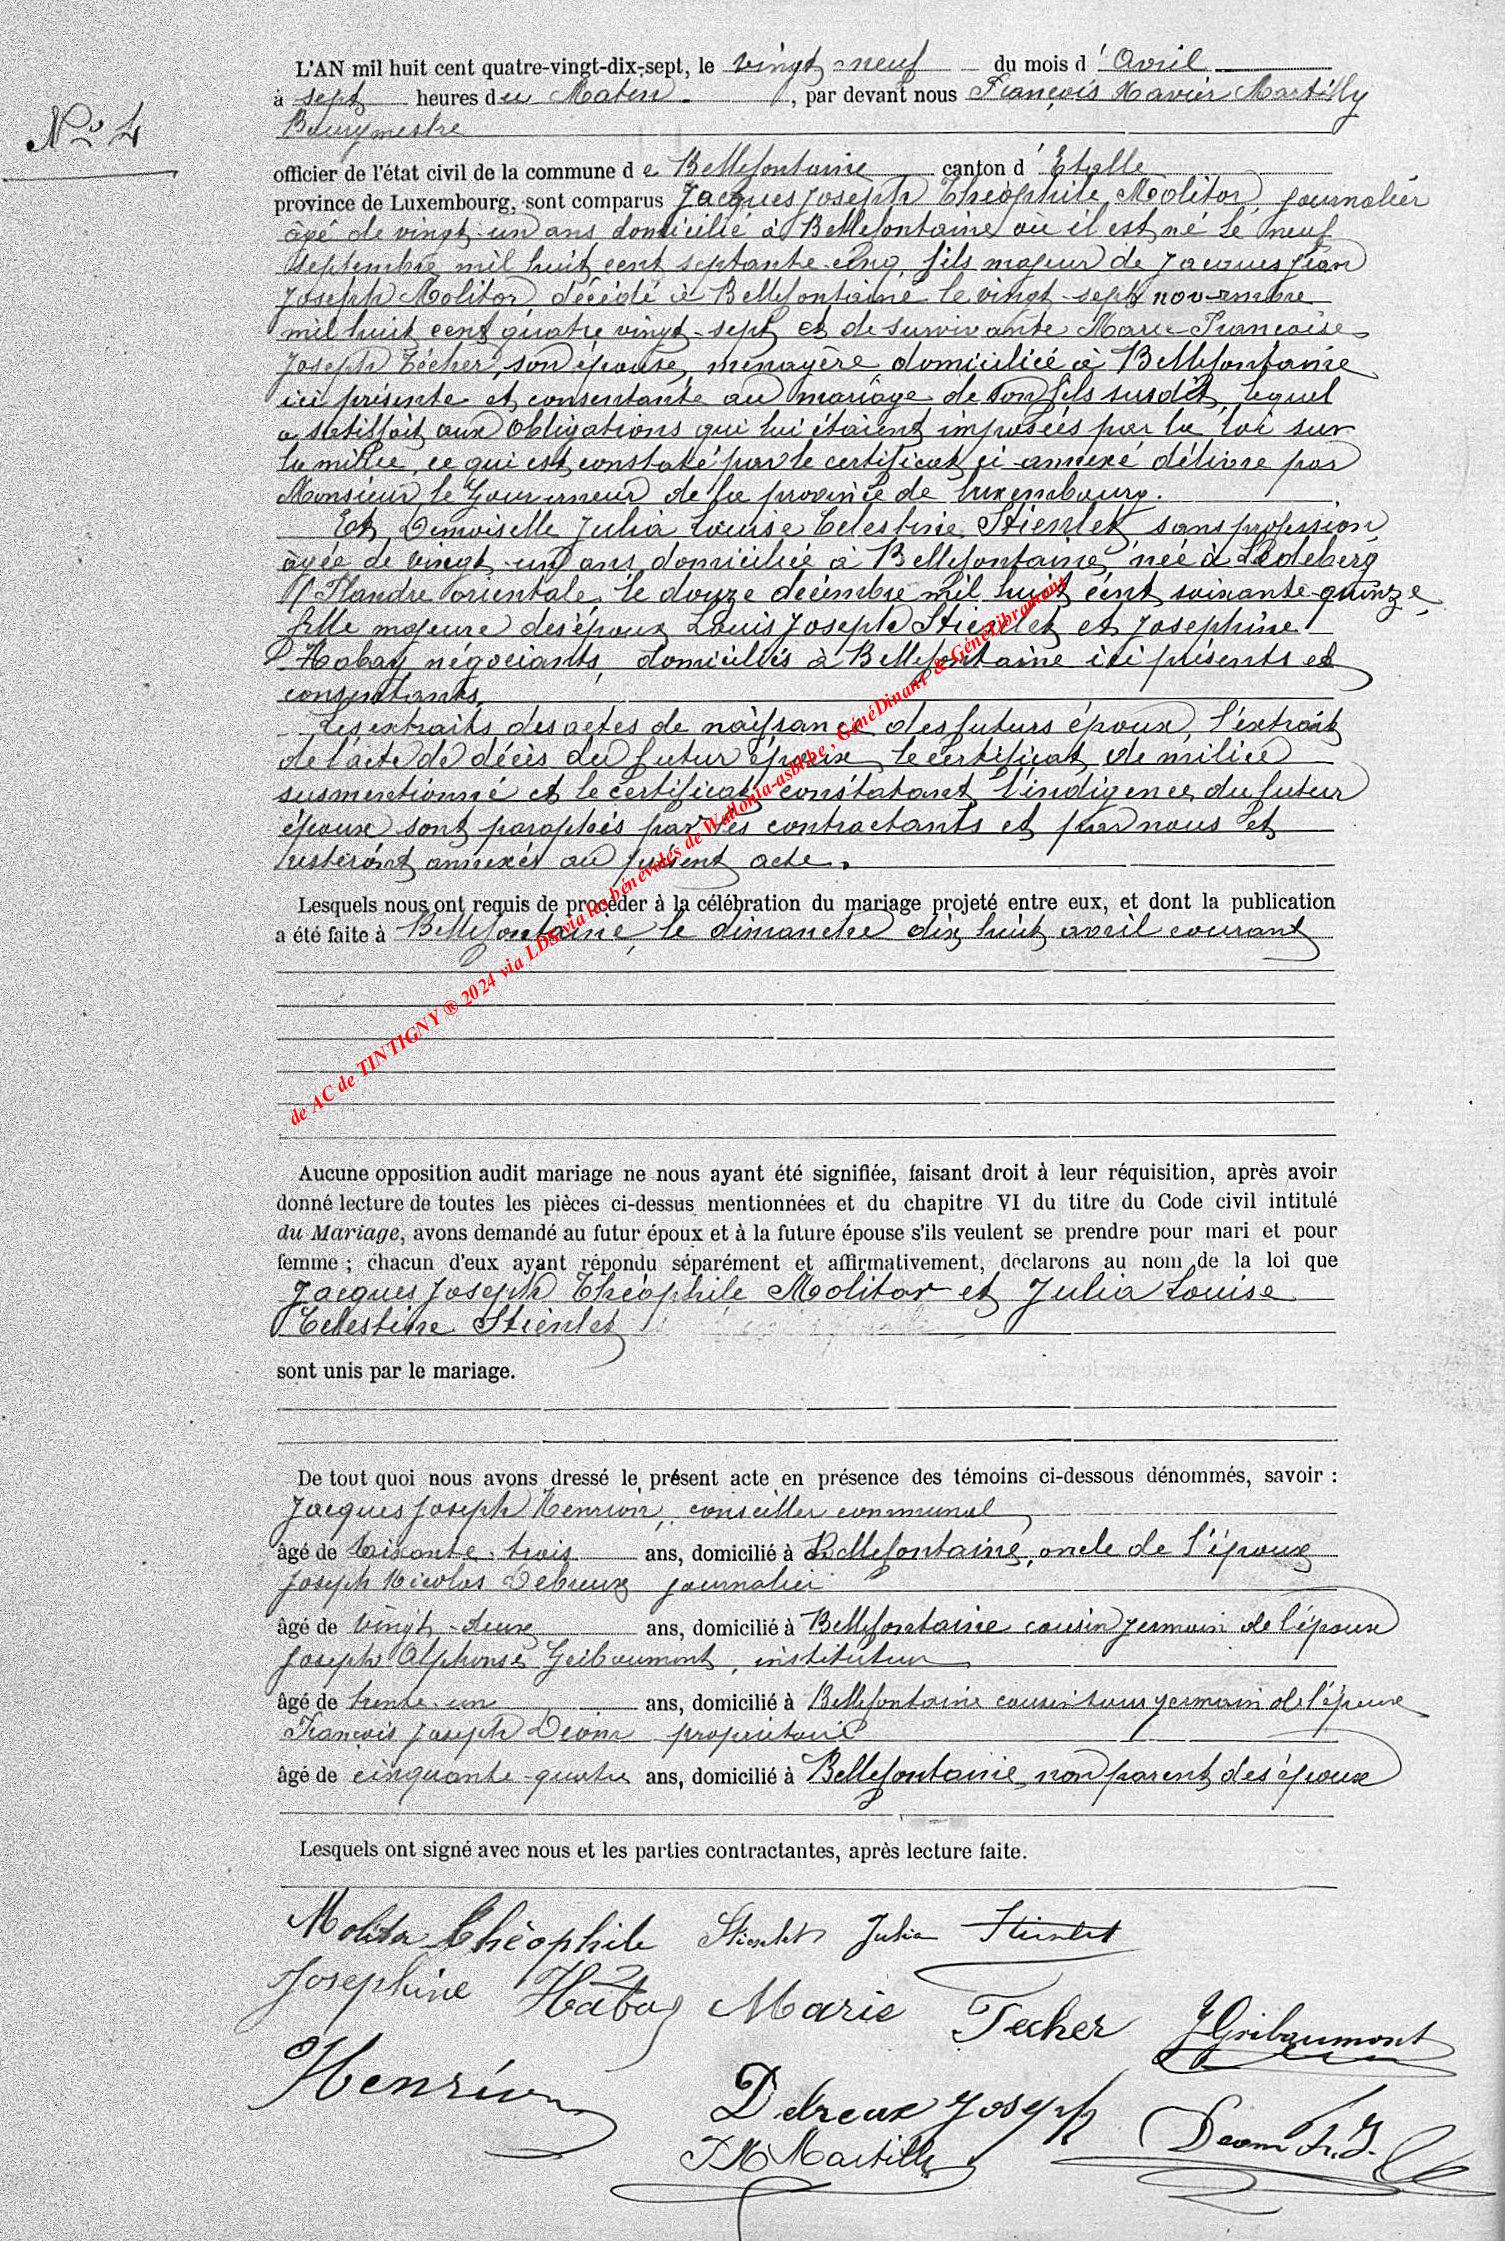 No 4
L'AN mil huit cent quatre-vingt-dix-sept, le vingt-neuf du mois d'Avril
à sept heures du Matin, par devant nous François Xavier Martilly
Bourgmestre
officier de l'état civil de la commune de Bellefontaine canton d'Etalle
province de Luxembourg, sont comparus Jacques Joseph Théophile Molitor, journalier
âgé de vingt-un ans domicilié à Bellefontaine où il est né le neuf
septembre mil huit cent septante-cinq, fils majeur de Jacques Jean
Joseph Molitor, décédé à Bellefontaine le vingt-sept novembre
mil huit cent quatre vingt-sept et de survivante Marie-Françoise
Joseph Técher, son épouse, ménagère, domiciliée à Bellefontaine
ici présente et consentante au mariage de son fils susdit, lequel
a satisfait aux obligations qui lui étaient imposées par la loi sur
la milice, ce qui est constaté par le certificat ci-annexé délivré par
Monsieur le Gouverneur de la province de Luxembourg.
Et Demoiselle Julia Louise Célestine Stienlet, sans profession,
âgée de vingt-un ans, domiciliée à Bellefontaine, née à Ledeberg
Flandre orientale, le douze décembre mil huit cent soixante-quinze,
fille majeure des époux Louis Joseph Stienlet et Joséphine
Habay, négociants, domiciliés à Bellefontaine ici présents et
consentants.
Les extraits des actes de naissance des futurs époux, l'extrait
de l'acte de décès du futur époux, le certificat de milice
susmentionné et le certificat constatant l'indigence du futur
époux sont paraphés par les contractants et par nous et
resteront annexés au présent acte.
Lesquels nous ont requis de procéder à la célébration du mariage projeté entre eux, et dont la publication
a été faite à Bellefontaine, le dimanche dix huit avril courant
de AC de TINTIGNY ® 2024 via LDS via les bénévoles de Wallonia-asbl.be, GénéDinant & GénéLibramont
Aucune opposition audit mariage ne nous ayant été signifiée, faisant droit à leur réquisition, après avoir
donné lecture de toutes les pièces ci-dessus mentionnées et du chapitre VI du titre du Code civil intitulé
du Mariage, avons demandé au futur époux et à la future épouse s'ils veulent se prendre pour mari et pour
femme ; chacun d'eux ayant répondu séparément et affirmativement, déclarons au nom de la loi que
Jacques Joseph Théophile Molitor et Julia Louise
Célestine Stienlet
sont unis par le mariage.
De tout quoi nous avons dressé le présent acte en présence des témoins ci-dessous dénommés, savoir :
Jacques Joseph Henrion, conseiller communal
âgé de soixante-trois ans, domicilié à Bellefontaine, oncle de l'époux
Joseph Nicolas Debreux journalier
âgé de vingt-deux ans, domicilié à Bellefontaine cousin germain de l'époux
Joseph Alphonse Gribaumont, instituteur
âgé de trente-un ans, domicilié à Bellefontaine cousin germain de l'épouse
François Joseph Deom propriétaire
âgé de cinquante-quatre ans, domicilié à Bellefontaine, non parent des époux
Lesquels ont signé avec nous et les parties contractantes, après lecture faite.
Molitor Théophile Stienlet Julia Stienlet
Joséphine Habay Marie Techer J Gribaumont
Henrion Debreux Joseph Deom F. J.
F X Martilly